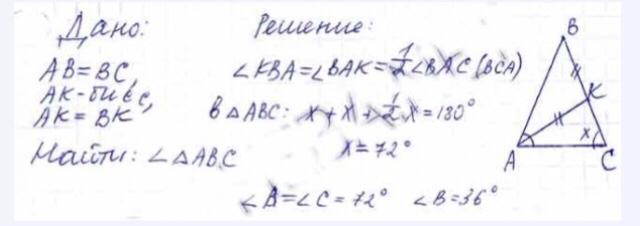 Дано:
AB=BC,
AK-бисс,
AK=BK
Найти: ∠△ABC
Решение:
∠KBA=∠BAK=1/2∠BAC(BCA)
в△ABC: x+x+1/2x=180°
x=72°
∠A=∠C=72° ∠B=36°
B
K
A
x
C